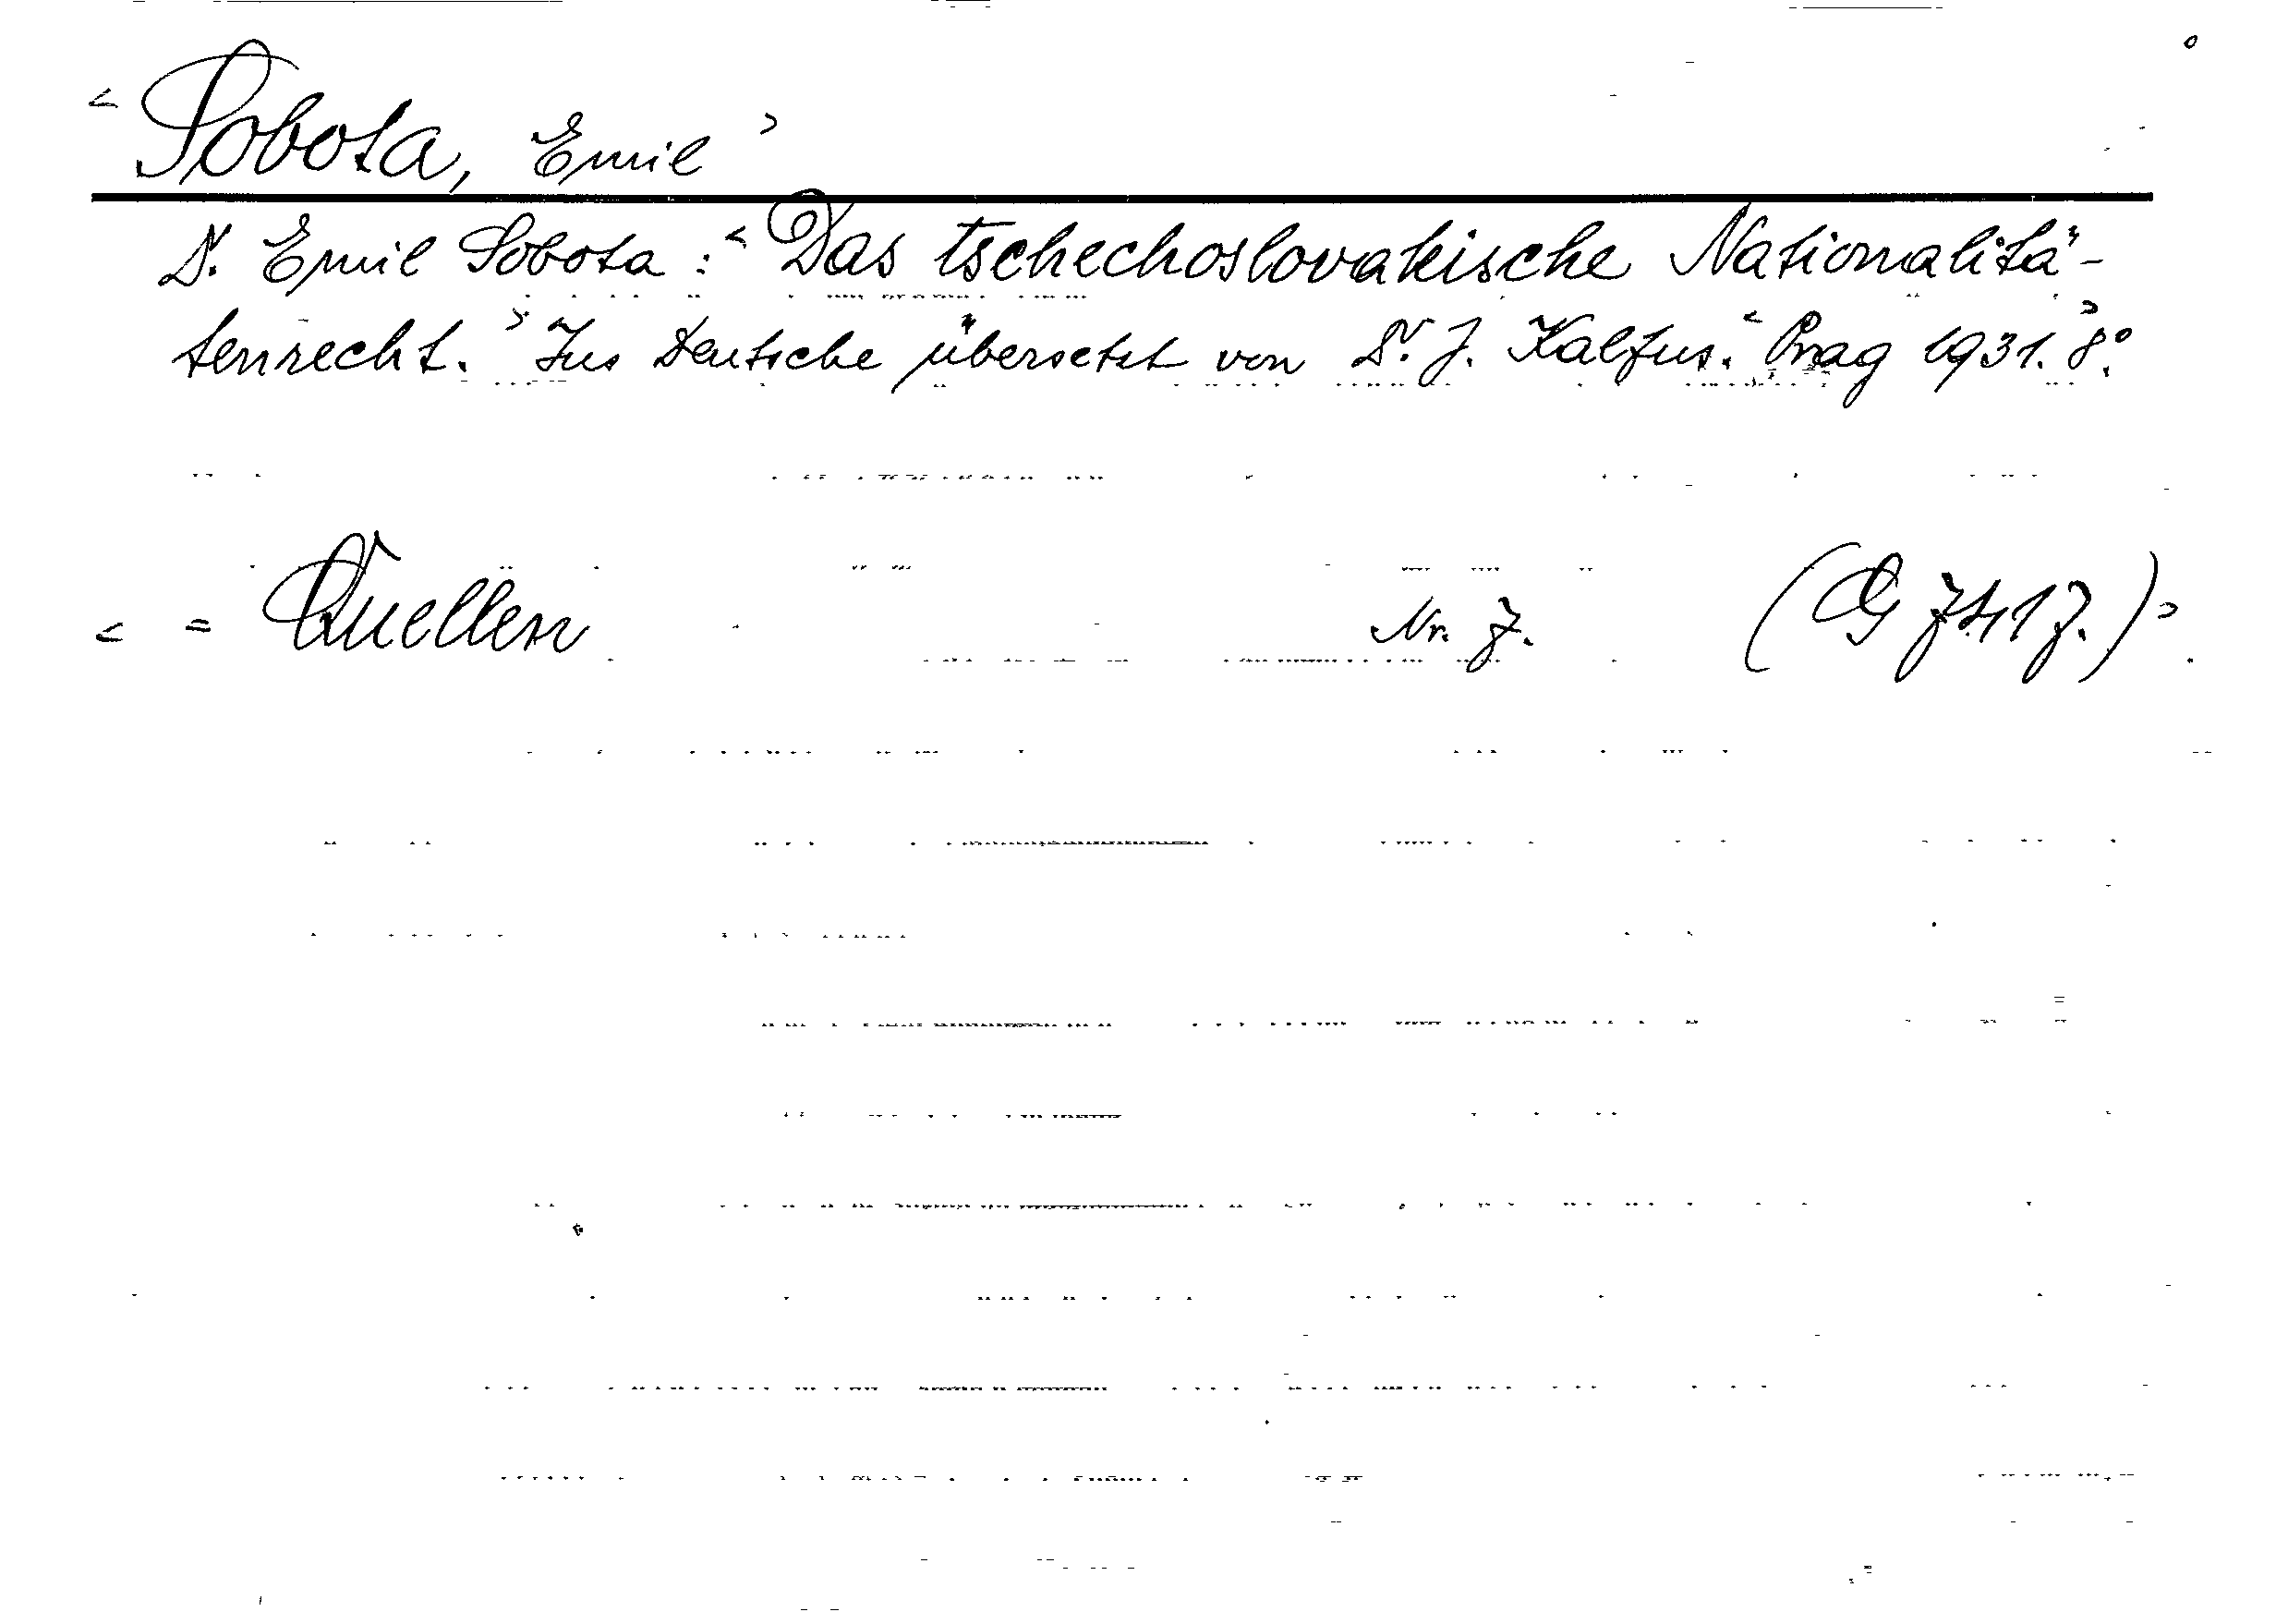 < Sobota, Emil >
Dr. Emil Sobota: < Das tschechoslovakische Nationalitä-
tenrecht. > Ins Deutsche übersetzt von Dr. J. Kalfus. < Prag 1931. > 8°.
< = Quellen Nr. 7. (G 7417.) >